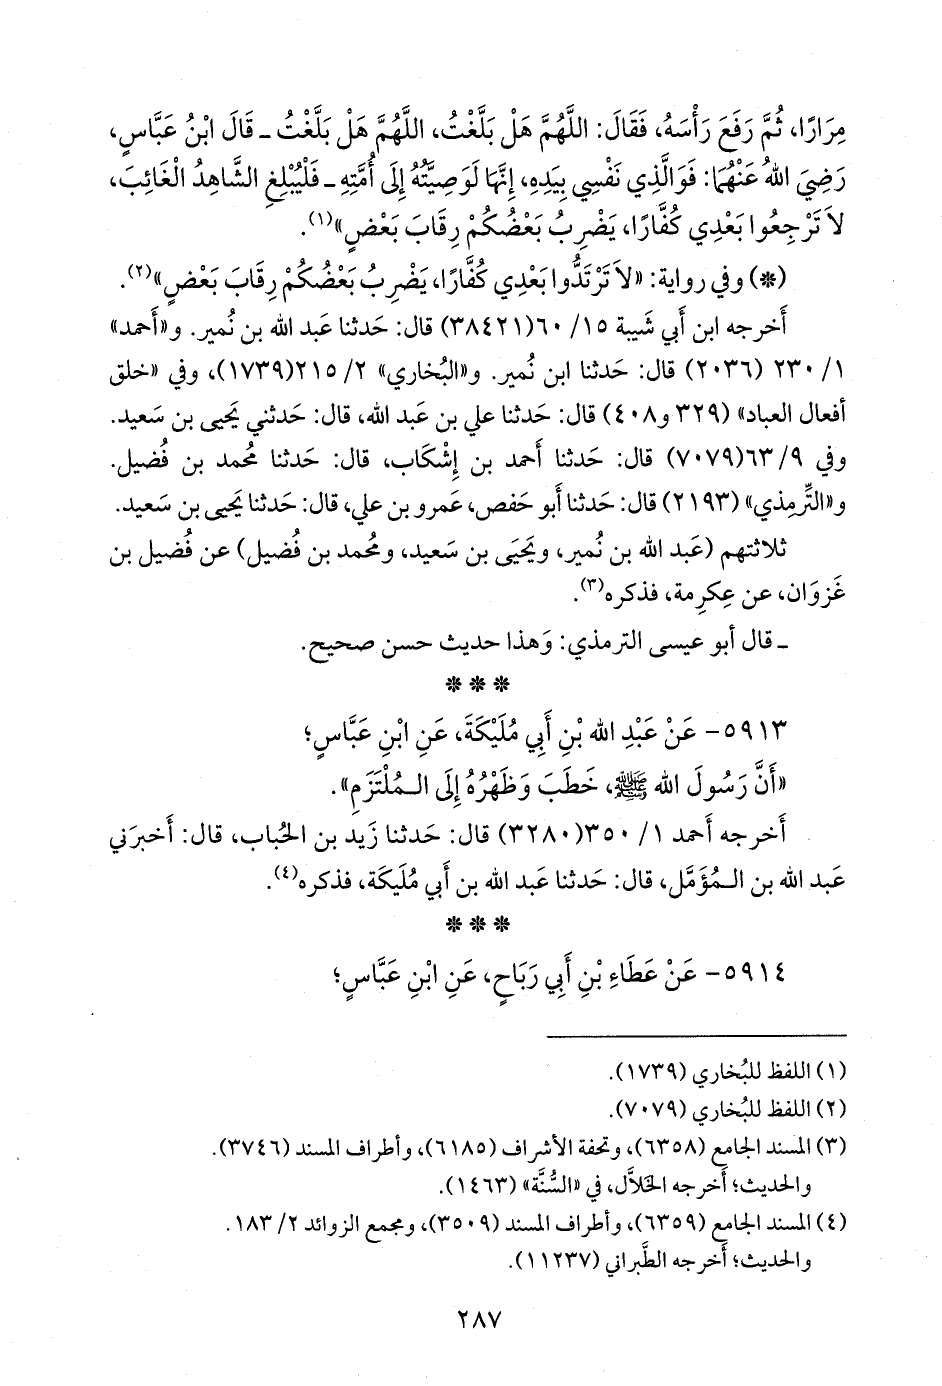 مِرَارًا، ثُمَّ رَفَعَ رَأْسَهُ، فَقَالَ: اللَّهُمَّ هَلْ بَلَّغْتُ، اللَّهُمَّ هَلْ بَلَّغْتُ ـ قَالَ ابْنُ عَبَّاسٍ،
رَضِيَ اللهُ عَنْهُمَا: فَوَالَّذِي نَفْسِي بِيَدِهِ، إِنَّهَا لَوَصِيَّتُهُ إِلَى أُمَّتِهِ ـ فَلْيُبْلِغِ الشَّاهِدُ الْغَائِبَ،
لاَ تَرْجِعُوا بَعْدِي كُفَّارًا، يَضْرِبُ بَعْضُكُمْ رِقَابَ بَعْضٍ»(١).
(*) وفي رواية: «لاَ تَرْتَدُّوا بَعْدِي كُفَّارًا، يَضْرِبُ بَعْضُكُمْ رِقَابَ بَعْضٍ»(٢).
أَخرجه ابن أَبي شَيبة ١٥/ ٦٠(٣٨٤٢١) قال: حَدثنا عَبد الله بن نُمير. و«أَحمد»
١/ ٢٣٠ (٢٠٣٦) قال: حَدثنا ابن نُمير. و«البُخاري» ٢/ ٢١٥(١٧٣٩)، وفي «خلق
أفعال العباد» (٣٢٩ و٤٠٨) قال: حَدثنا علي بن عَبد الله، قال: حَدثني يَحيى بن سَعيد.
وفي ٩/ ٦٣(٧٠٧٩) قال: حَدثنا أَحمد بن إِشْكَاب، قال: حَدثنا مُحمد بن فُضيل.
و«التِّرمِذي» (٢١٩٣) قال: حَدثنا أَبو حَفص، عَمرو بن علي، قال: حَدثنا يَحيى بن سَعيد.
ثلاثتهم (عَبد الله بن نُمير، ويَحيَى بن سَعيد، ومُحمد بن فُضيل) عن فُضيل بن
غَزوَان، عن عِكرِمة، فذكره(٣).
ـ قال أَبو عيسى الترمذي: وَهذا حديث حسن صحيح.
* * *
٥٩١٣- عَنْ عَبْدِ الله بْنِ أَبِي مُلَيْكَةَ، عَنِ ابْنِ عَبَّاسٍ؛
«أَنَّ رَسُولَ الله ﷺ، خَطَبَ وَظَهْرُهُ إِلَى الـمُلْتَزَمِ».
أَخرجه أَحمد ١/ ٣٥٠(٣٢٨٠) قال: حَدثنا زَيد بن الحُباب، قال: أَخبرَني
عَبد الله بن الـمُؤَمَّل، قال: حَدثنا عَبد الله بن أَبي مُلَيكَة، فذكره(٤).
* * *
٥٩١٤- عَنْ عَطَاءِ بْنِ أَبِي رَبَاحٍ، عَنِ ابْنِ عَبَّاسٍ؛
(١) اللفظ للبُخاري (١٧٣٩).
(٢) اللفظ للبُخاري (٧٠٧٩).
(٣) المسند الجامع (٦٣٥٨)، وتحفة الأشراف (٦١٨٥)، وأطراف المسند (٣٧٤٦).
والحديث؛ أَخرجه الخَلاَّل، في «السُّنَّة» (١٤٦٣).
(٤) المسند الجامع (٦٣٥٩)، وأطراف المسند (٣٥٠٩)، ومجمع الزوائد ٢/ ١٨٣.
والحديث؛ أَخرجه الطَّبراني (١١٢٣٧).
٢٨٧